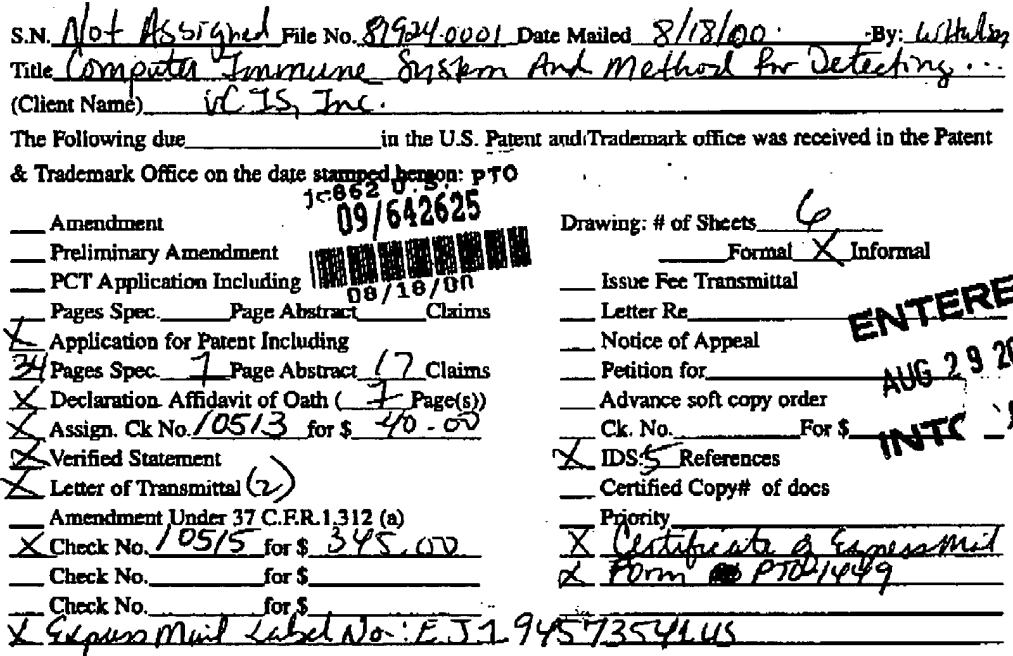 S.N. Not Assigned File No. 81924.0001 Date Mailed 8/18/00 By: W Hulsey
Title Computer Immune System And Method for Detecting...
(Client Name) vCIS, Inc.
The Following due in the U.S. Patent and Trademark office was received in the Patent
& Trademark Office on the date stamped hereon: PTO
jc862 U.S.
09/642625
08/18/00
Amendment
Preliminary Amendment
PCT Application Including
Pages Spec. Page Abstract Claims
X Application for Patent Including
34 Pages Spec. 1 Page Abstract 17 Claims
X Declaration Affidavit of Oath ( 7 Page(s))
X Assign. Ck No. 10513 for $ 40.00
X Verified Statement
X Letter of Transmittal (2)
Amendment Under 37 C.F.R.1.312 (a)
X Check No. 10515 for $ 345.00
Check No. for $
Check No. for $
X Express Mail Label No: EJ194573541US
Drawing: # of Sheets 6
Formal X Informal
Issue Fee Transmittal
Letter Re
Notice of Appeal
Petition for
Advance soft copy order
Ck. No. For $
X IDS: 5 References
Certified Copy# of docs
Priority
X Certificate of Express Mail
X Form PTO-1449
ENTERE
AUG 29 20